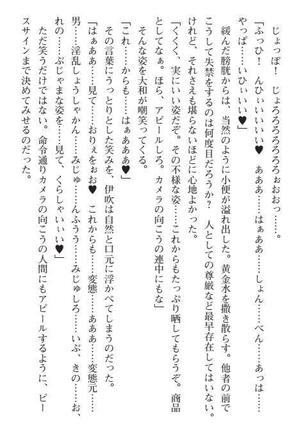 じょっぽ！　じょろろろろろろろぉぉおおっ……。
「ふっひ！　んひぃぃいいい♥　あああ……しょん……べん……あっは――
やっぱ……いひぃぃいい♥」
緩んだ膀胱からは、当然のように小便が溢れ出した。黄金水を撒き散らす。他者の前で
こうして失禁をするのは何度目だろうか？　人としての尊厳など最早存在してはいない。
けれど、それさえも堪らないほどに心地よかった。
「くくく、実にいい姿だぞ。その不様な姿……これからもたっぷり晒してもらおう。商品
としてなぁ。ほら、アピールしろ。カメラの向こうの連中にもな」
そんな姿を大和が嘲笑ってくる。
「これ……からも……はぁああ♥」
その言葉にうっとりとした笑みを、伊吹は自然と口元に浮かべてしまうのだった。
「はぁああ……見て……おりぇをぉお♥　これからも……変態……あああ……変態元……
男……淫乱しょうしゃかん……みじゅ……んふうう……みじゅしろ……いぶ、きの……お、
れの……ぶじゃまな姿を……見て、くらしゃいぃい♥」
ただ笑うだけではない。命令通りカメラの向こうの人間にもアピールするように、ピー
スサインまで決めてみせるのだった。